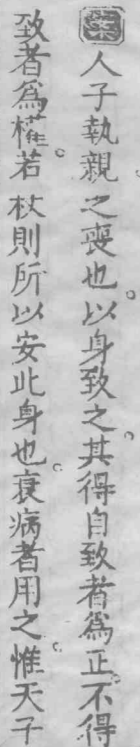 案人子執親之喪也。以身致之。其得自致者為正。不得
致者為權。若杖則所以安此身也。衰病者用之。惟天子